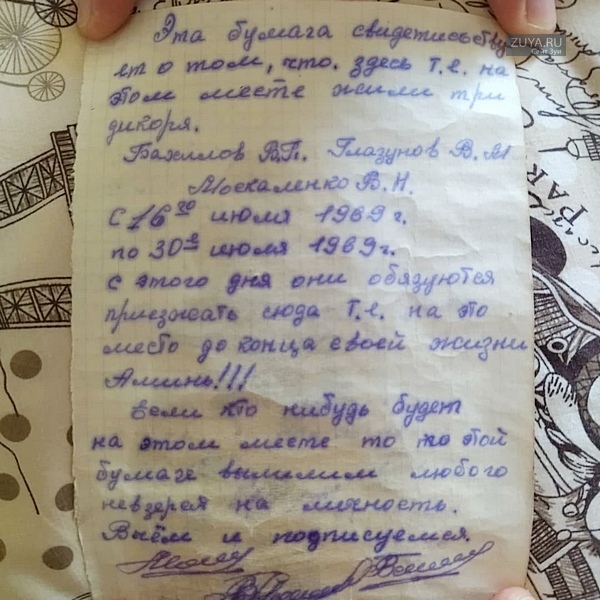 ZUYA.RU
Сайт Зуи
Эта бумага свидетисьству
ет о том, что. здесь т.е. на
этом месте жили три
дикоря.
Бахилов В.П.. Глазунов В. М
Москаленко В. Н.
С 16го июля 1969 г.
по 30е июля 1969г.
с этого дня они обязуются
приезжать сюда т.е. на это
место до конца своей жизни
Аминь!!!
если кто нибудь будет
на этом месте то по этой
бумаге вылилим любого
невзерая на личность.
Пьём и подписуемся.
РАК